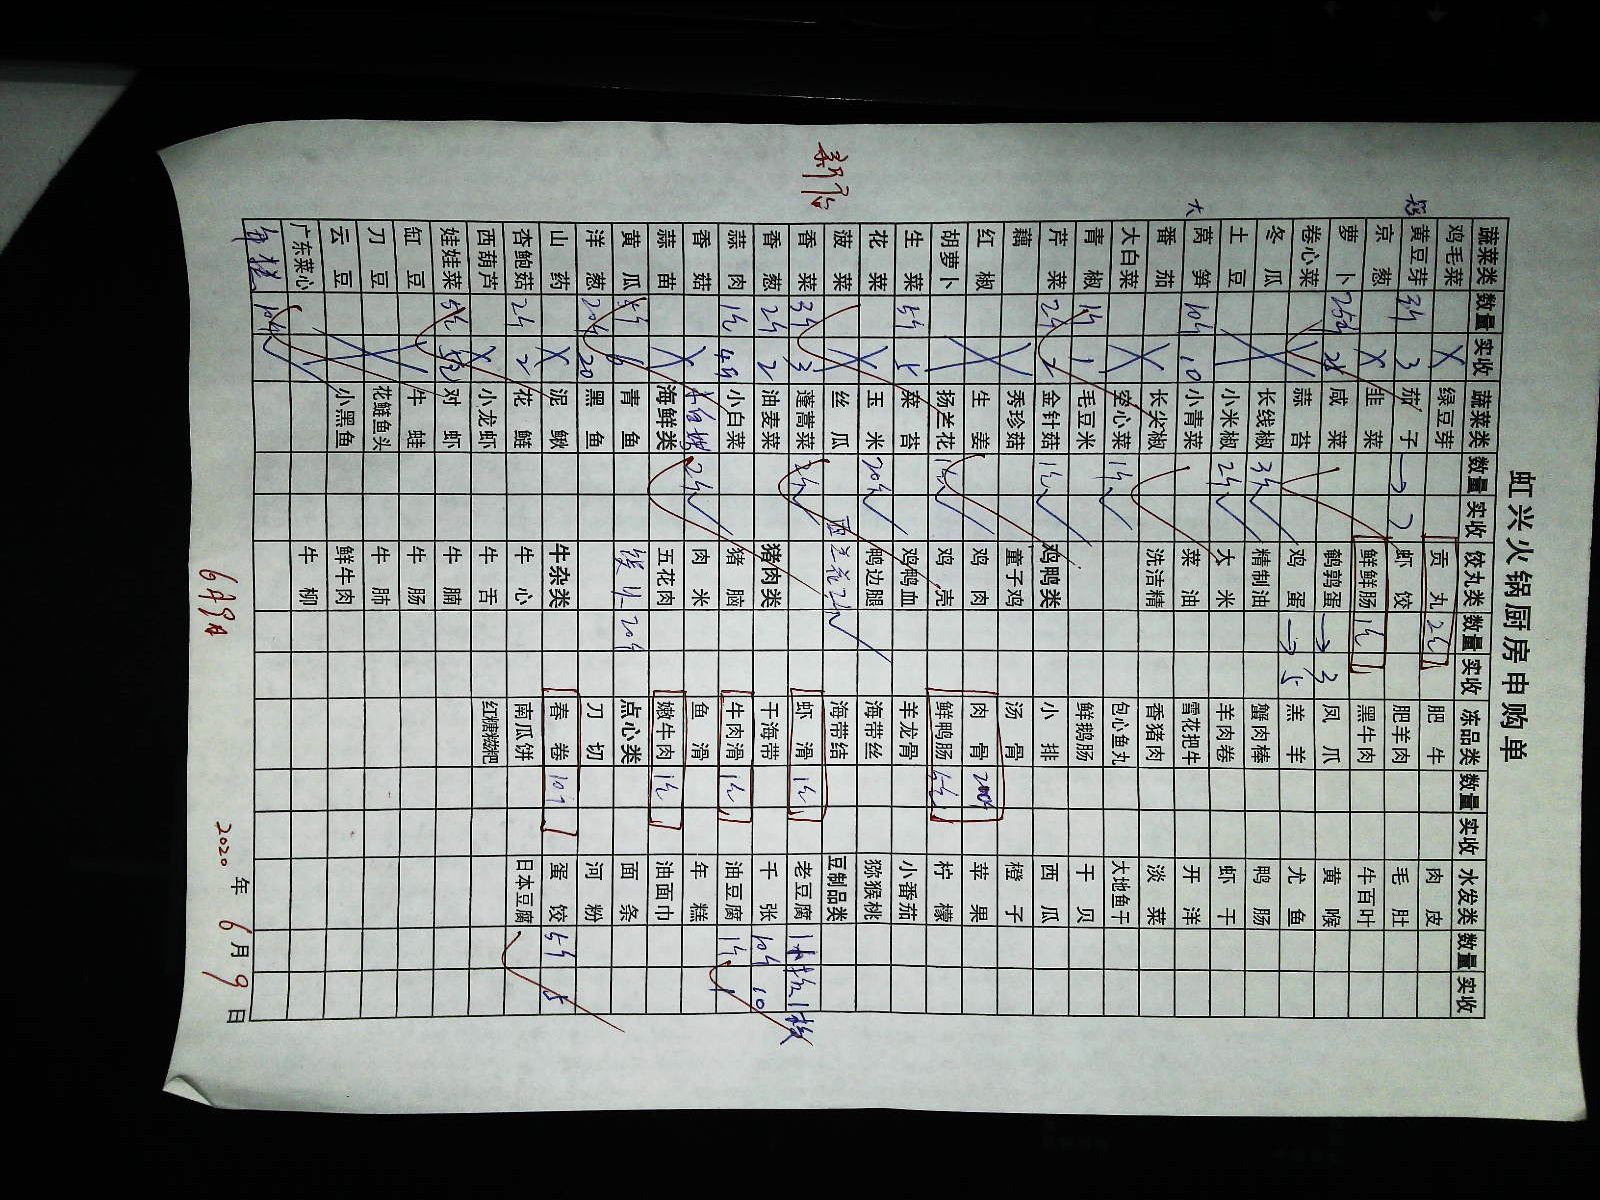 虹兴火锅厨房申购单
蔬菜类 数量 实收 蔬菜类 数量 实收 饺丸类 数量 实收 冻品类 数量 实收 水发类 数量 实收
鸡毛菜 绿豆芽 贡丸 2斤 肥牛 肉皮
黄豆芽 3斤 3 茄子 虾饺 肥羊肉 毛肚
京葱 韭菜 鲜鲜肠 1斤 黑牛肉 牛百叶
萝卜 25斤 咸菜 鹌鹑蛋 → 3 凤爪 黄喉
卷心菜 蒜苔 鸡蛋 → 5 羔羊 尤鱼
冬瓜 长线椒 3斤 精制油 蟹肉棒 鸭肠
土豆 小米椒 2斤 大米 羊肉卷 虾干
大 莴笋 10斤 10 小青菜 菜油 雪花把牛 开洋
番茄 长尖椒 洗洁精 香猪肉 淡菜
大白菜 空心菜 1斤 包心鱼丸 大地鱼干
青椒 1斤 1 毛豆米 鲜鹅肠 干贝
芹菜 2斤 2 金针菇 1斤 鸡鸭类 小排 西瓜
藕 秀珍菇 童子鸡 汤骨 橙子
红椒 生姜 鸡肉 肉骨 200斤 苹果
胡萝卜 扬兰花 1斤 鸡壳 鲜鸭肠 5斤 柠檬
生菜 5斤 5 菜苔 鸡鸭血 羊龙骨 小番茄
花菜 玉米 20斤 鸭边腿 海带丝 猕猴桃
菠菜 丝瓜 西兰花2斤 海带结 豆制品类
新店 香菜 3斤 3 蓬蒿菜 2斤 虾滑 1斤 老豆腐 1板
香葱 2斤 2 油麦菜 猪肉类 干海带 千张 10斤 10
蒜肉 1斤 小白菜 猪脑 牛肉滑 1斤 油豆腐 1斤 1
香菇 2斤 肉米 鱼滑 年糕
蒜苗 海鲜类 五花肉 嫩牛肉 1斤 油面巾
黄瓜 5斤 6 青鱼 20斤 点心类 面条
洋葱 20斤 20 黑鱼 刀切 河粉
山药 泥鳅 牛杂类 春卷 10个 蛋饺 5斤 5
杏鲍菇 2斤 2 花鲢 牛心 南瓜饼 日本豆腐
西葫芦 小龙虾 牛舌 红糖糍粑
娃娃菜 5斤 对虾 牛腩
缸豆 牛蛙 牛肠
刀豆 花鲢鱼头 牛肺
云豆 小黑鱼 鲜牛肉
广东菜心 牛柳
年糕 10斤
6月9日 2020年6月9日